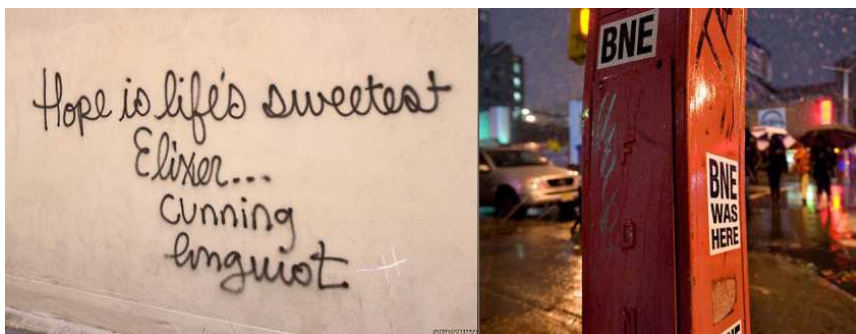 Hope is life's sweetest
Elixer...
cunning
linguist
BNE
BNE
WAS
HERE
BNE